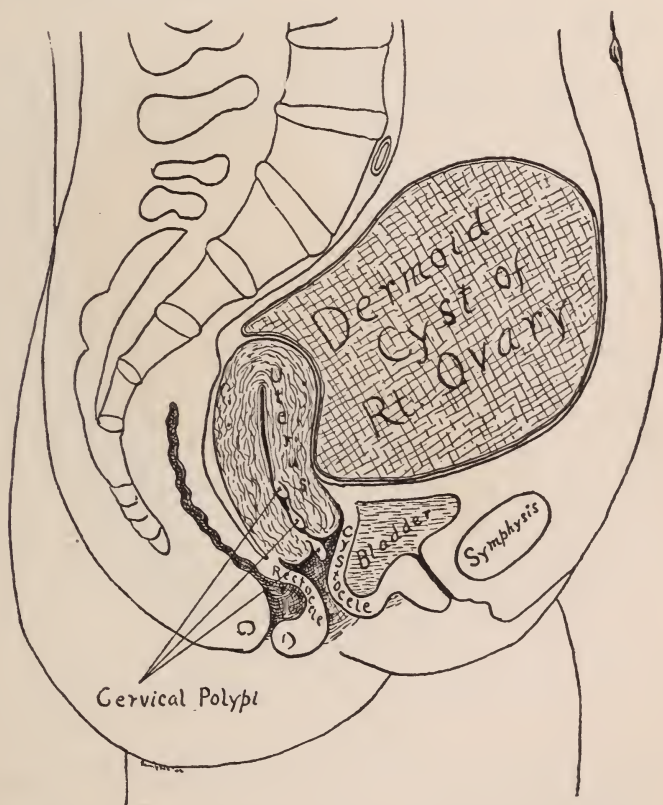 Dermoid
Cyst of
Rt. Ovary
Uterus
Bladder
Symphysis
Cystocele
Rectocele
Cervical Polypi